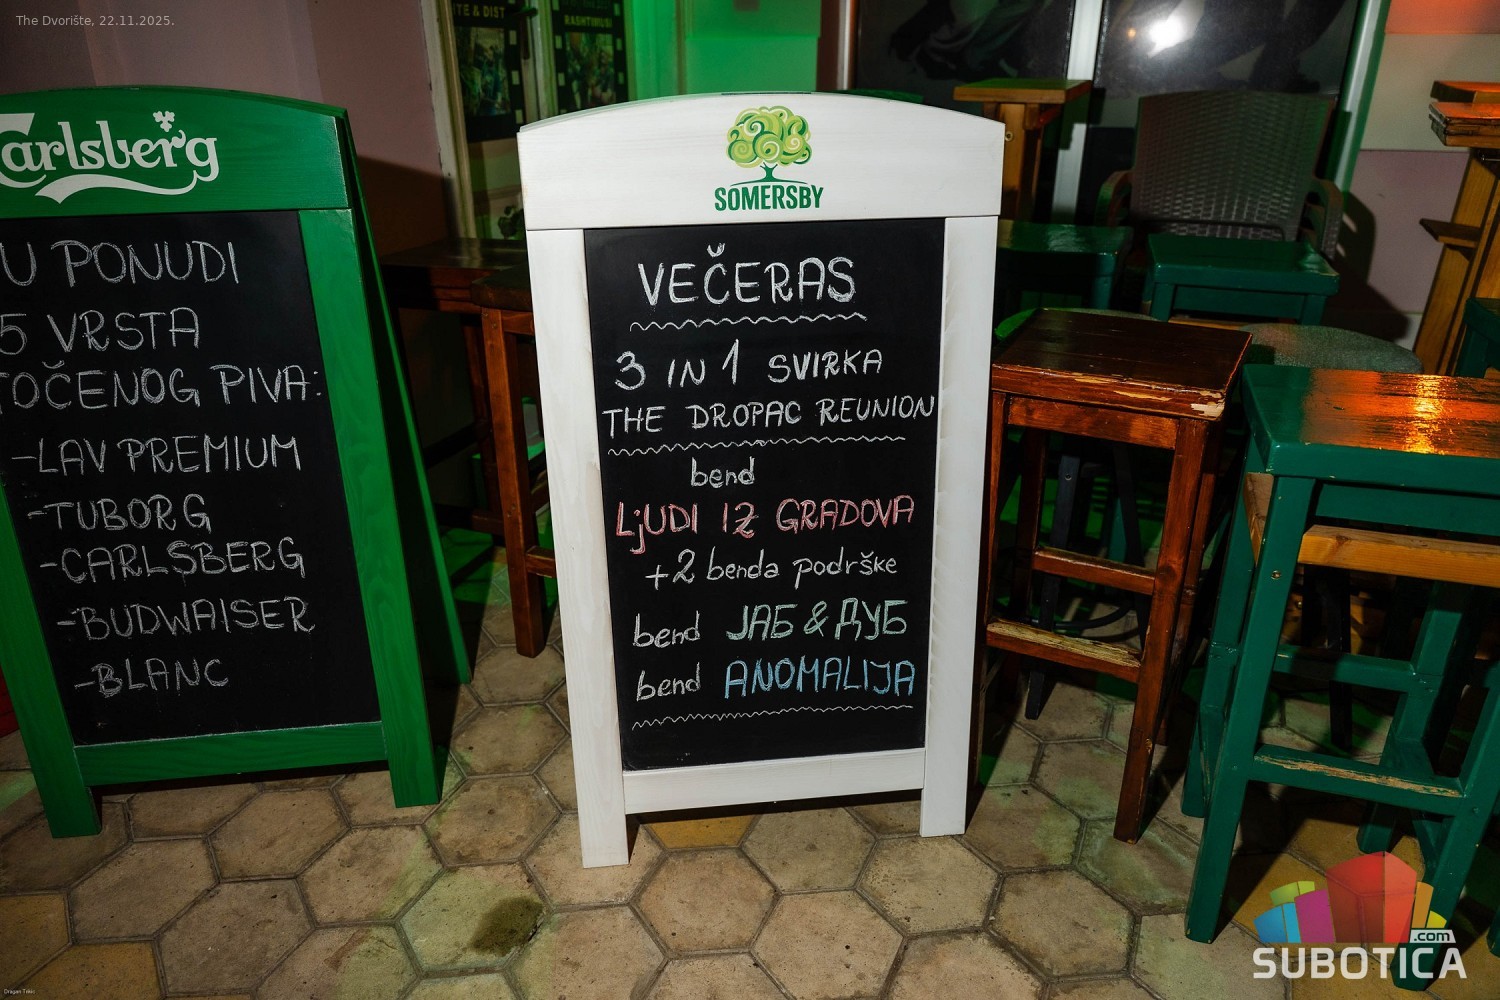 The Dvorište, 22.11.2025.
TE & DIST
RASHTIMUSI
Carlsberg
U PONUDI
5 VRSTA
TOČENOG PIVA:
-LAV PREMIUM
-TUBORG
-CARLSBERG
-BUDWAISER
-BLANC
SOMERSBY
VEČERAS
3 IN 1 SVIRKA
THE DROPAC REUNION
bend
LjUDI IZ GRADOVA
+2 benda podrške
bend ЈАБ & ДУБ
bend ANOMALIJA
.com
SUBOTICA